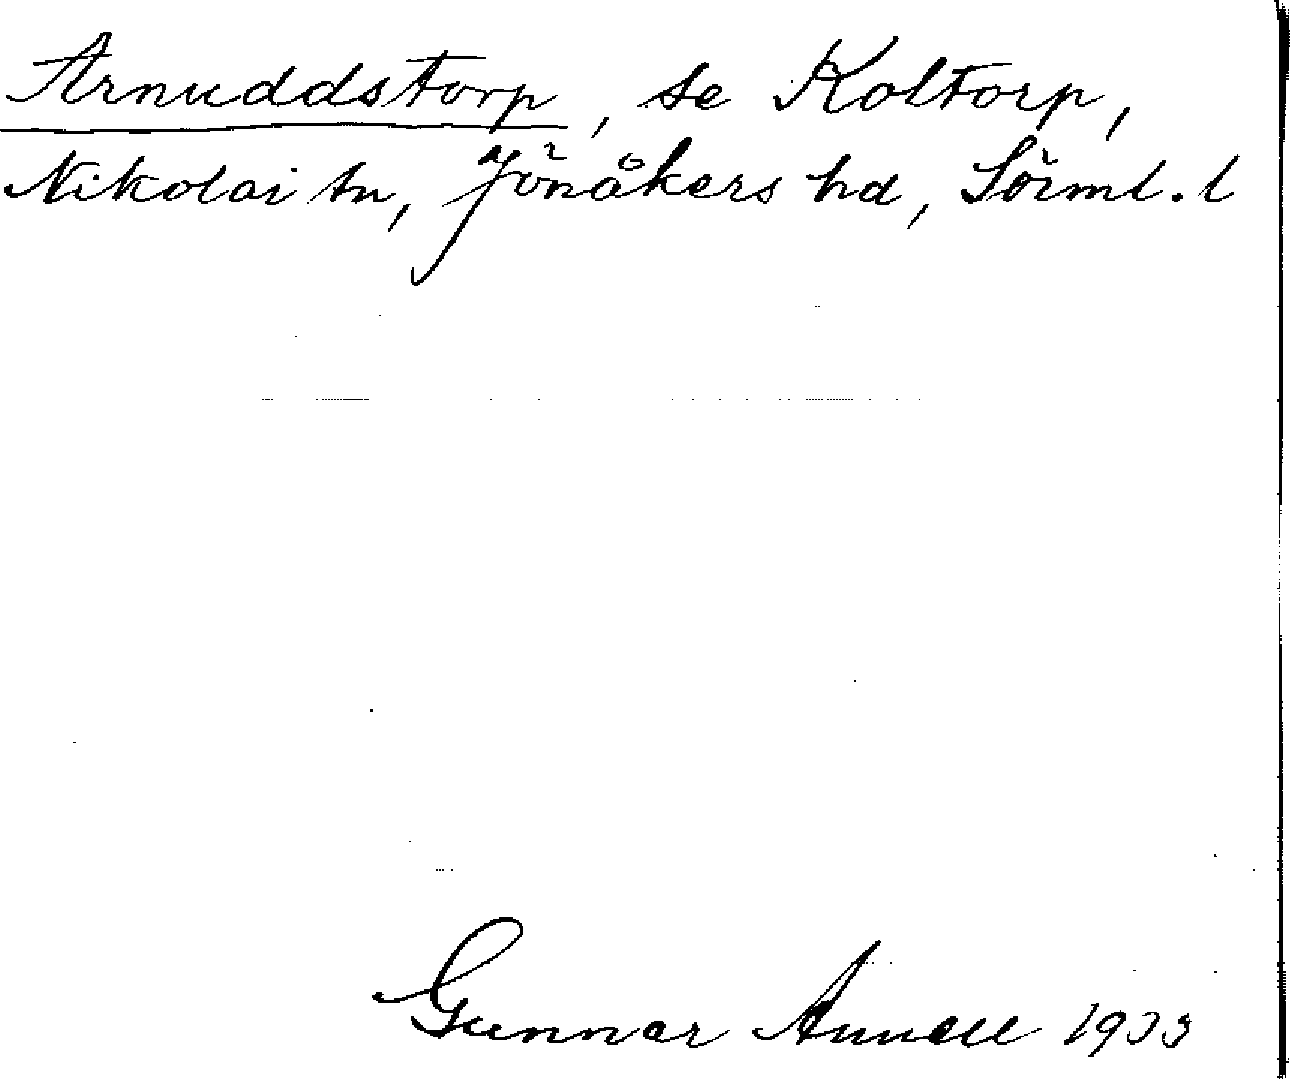 Arnuddstorp, se Koltorp,
Nikolai sn, Jönåkers hd, Sörml. l
Gunnar Annell 1933